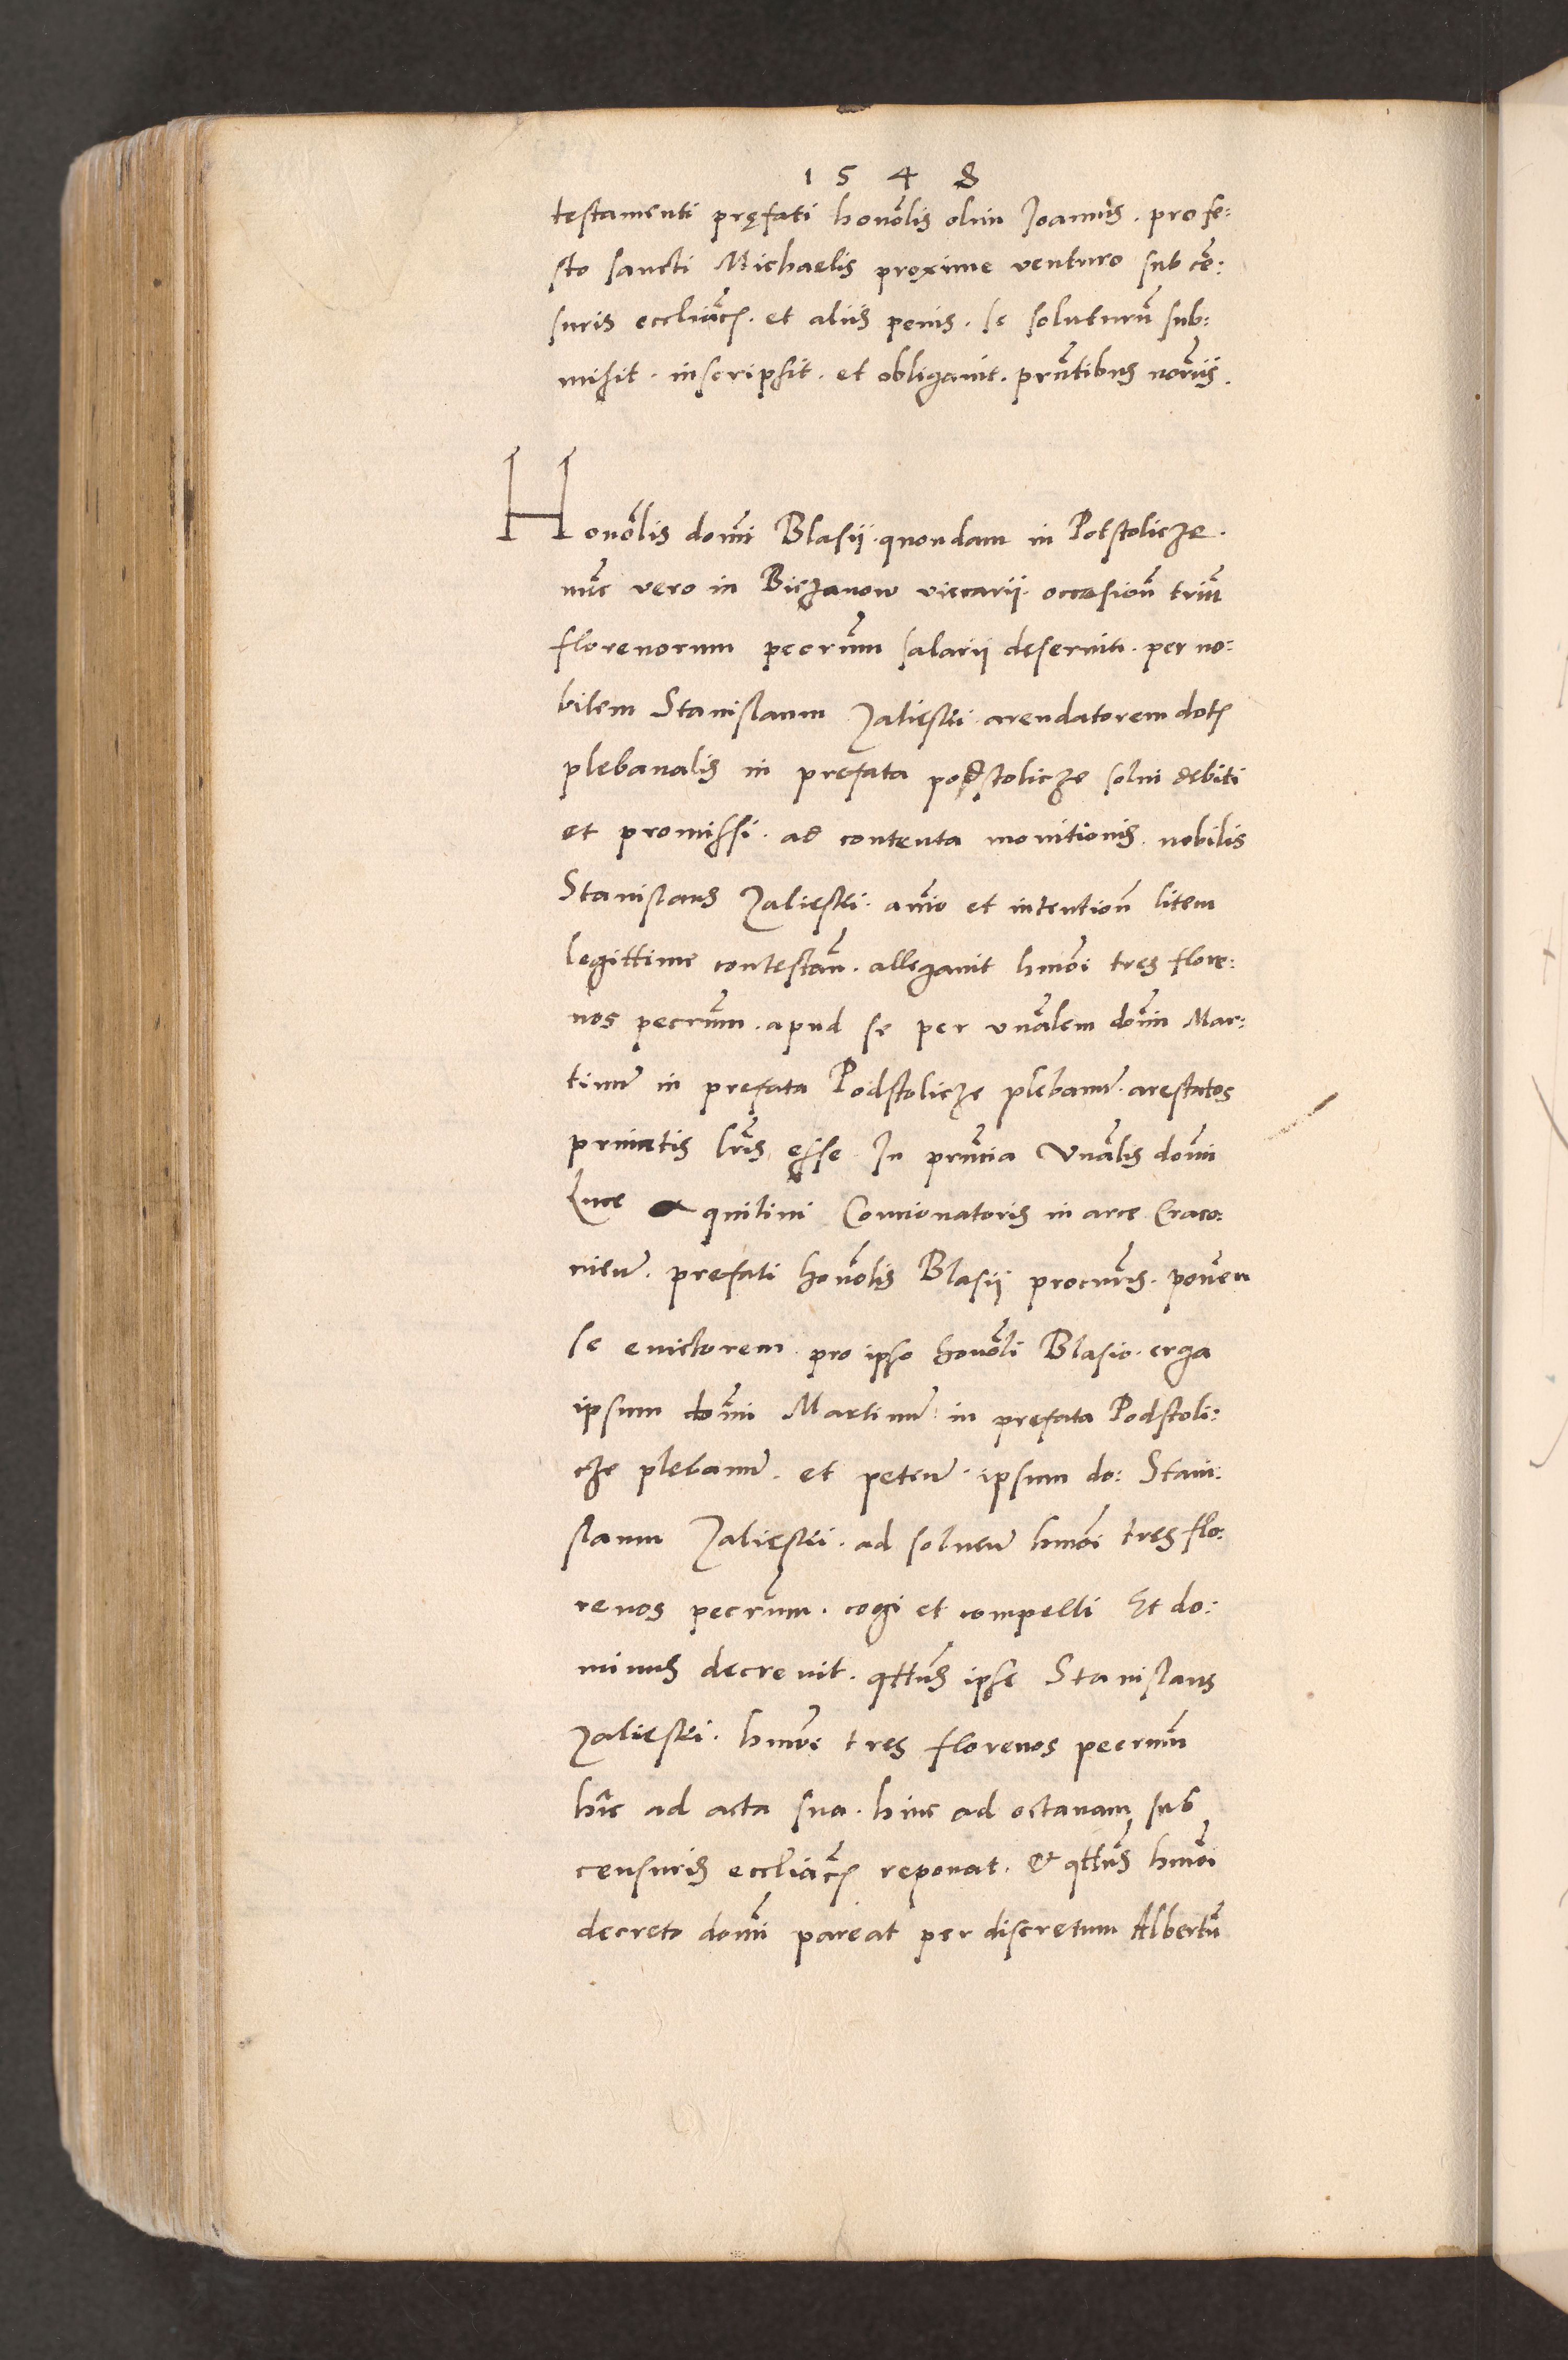 1548
testamenti pręfati honolis olim Joannis . pro fe:
sto sancti Michaelis proxime venturo sub cē:
suris eccliacs . et aliis penis . se soluturū sub:
misit . inscripsit . et obligavit . prntibus notriis .
Honolis domi Blasii . quondam in Potstolicze .
nūc vero in Biczanow viccarii . occasion triū
florenorum pecrum salarii deserviti . per no:
bilem Stanislaum Zalieski . arendatorem dotis
plebanalis in prefata podstolicze solvi debiti
et promissi . ad contenta monitionis . nobilis
Stanislaus Zalieski . animo et intention litem
legittime contestan . allegavit hmoi tres flore:
nos pecrum . apud se per vnalem domin Mar:
tinum in prefata Podstolicze plebanum . arestatos
privatis lris esse . In prntia vnalis domi
Luce Aquilini Concionatoris in arce Craco:
vien . prefati honolis Blasii procuris . ponen
se evictorem . pro ipso honoli Blasio . erga
ipsum domi Martinum in prefata Podstoli:
cze plebanum . et peten . ipsum do: Stani:
slaum Zalieski . ad solven hmoi tres flo:
renos pecrum . cogi et compelli Et do:
minus decrevit . qttus ipse Stanislaus
Zalieski . hmoi tres florenos pecrum
hūc ad acta sua . hinc ad octavam sub
censuris eccliacs reponat . & qttus hmoi
decreto domi pareat per discretum Albertū